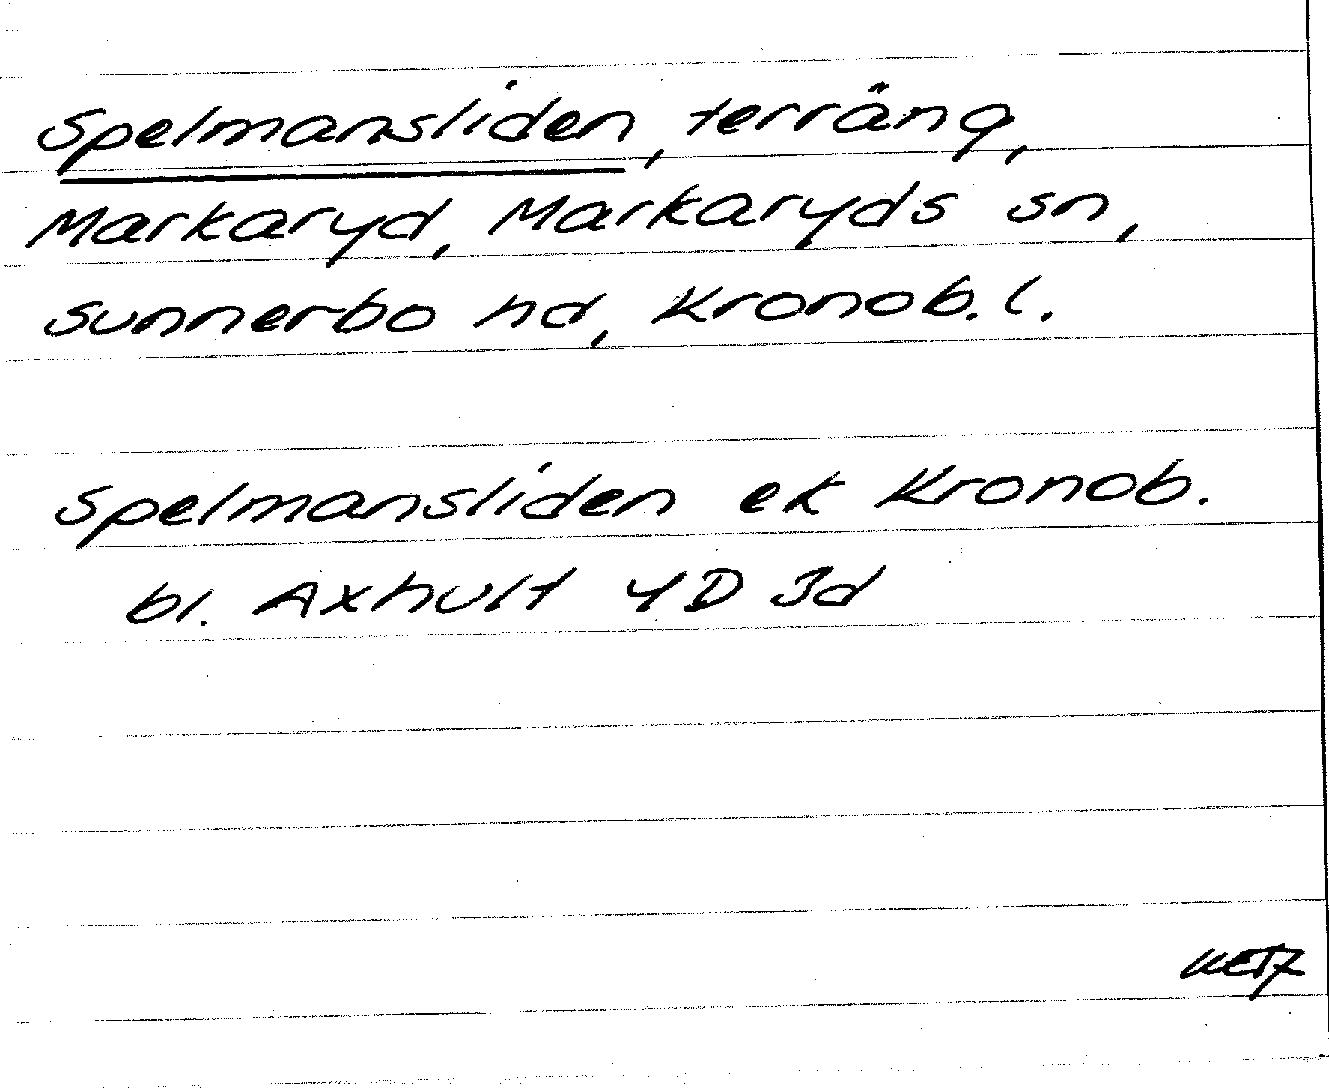 Spelmansliden, terräng,
Markaryd, Markaryds sn,
Sunnerbo hd, Kronob. l.
Spelmansliden ek Kronob.
bl. Axhult 4D 3d